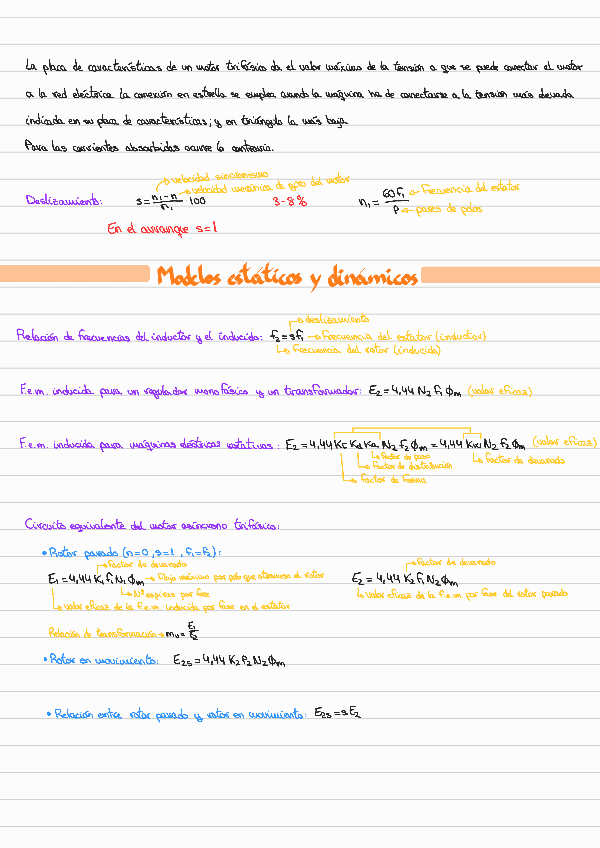 La placa de características de un motor trifásico da el valor máximo de la tensión a que se puede conectar el motor
a la red eléctrica. La conexión en estrella se emplea cuando la máquina ha de conectarse a la tensión más elevada
indicada en su placa de características; y en triángulo la más baja.
Para las corrientes absorbidas ocurre lo contrario.
velocidad sincronismo
velocidad mecánica de giro del motor
Deslizamiento: s = (n₁ - n)/n₁ · 100 3-8% n₁ = 60f₁/p
Frecuencia del estator
pares de polos
En el arranque s=1
Modelos estáticos y dinámicos
deslizamiento
Relación de frecuencias del inductor y el inducido: f₂ = sf₁ → Frecuencia del estator (inductor)
Frecuencia del rotor (inducido)
F.e.m. inducida para un regulador monofásico y un transformador: E₂ = 4,44 N₂ f₂ ϕm (valor eficaz)
F.e.m. inducida para máquinas eléctricas rotativas: E₂ = 4,44 Kf Kd Ka N₂ f₂ ϕm = 4,44 Kw N₂ f₂ ϕm (valor eficaz)
factor de paso
factor de distribución
factor de forma
factor de devanado
Circuito equivalente del motor asíncrono trifásico:
• Rotor parado (n=0, s=1, f₁=f₂):
factor de devanado
factor de devanado
E₁ = 4,44 K₁ f₁ N₁ ϕm → Flujo máximo por polo que atraviesa el rotor E₂ = 4,44 K₂ f₁ N₂ ϕm
Nº espiras por fase
valor eficaz de la f.e.m. inducida por fase en el estator
valor eficaz de la f.e.m. por fase del rotor parado
Relación de transformación → mv = E₁/E₂
• Rotor en movimiento: E₂s = 4,44 K₂ f₂ N₂ ϕm
• Relación entre rotor parado y rotor en movimiento: E₂s = sE₂